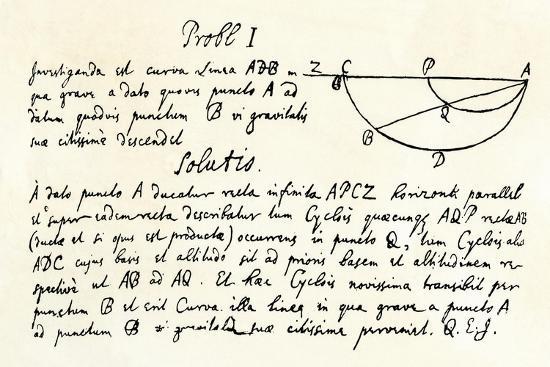 Probl I
Investiganda est curva Linea ADB in
qua grave a dato quovis puncto A ad
datum quodvis punctum B vi gravitatis
suæ citissimè descendet
Z C P A
B Q D
Solutio.
A dato puncto A ducatur recta infinita APCZ horizonti parallela
et super eadem recta describatur tum Cyclois quæcunque AQP rectæ AB
(ductæ et si opus est productæ) occurrens in puncto Q, tum Cyclois alia
ADC cujus basis et altitudo sit ad prioris basem et altitudinem re-
spectivè ut AB ad AQ. Et hæc Cyclois novissima transibit per
punctum B et erit Curva illa linea in qua grave a puncto A
ad punctum B vi gravitatis suæ citissime perveniet. Q.E.I.